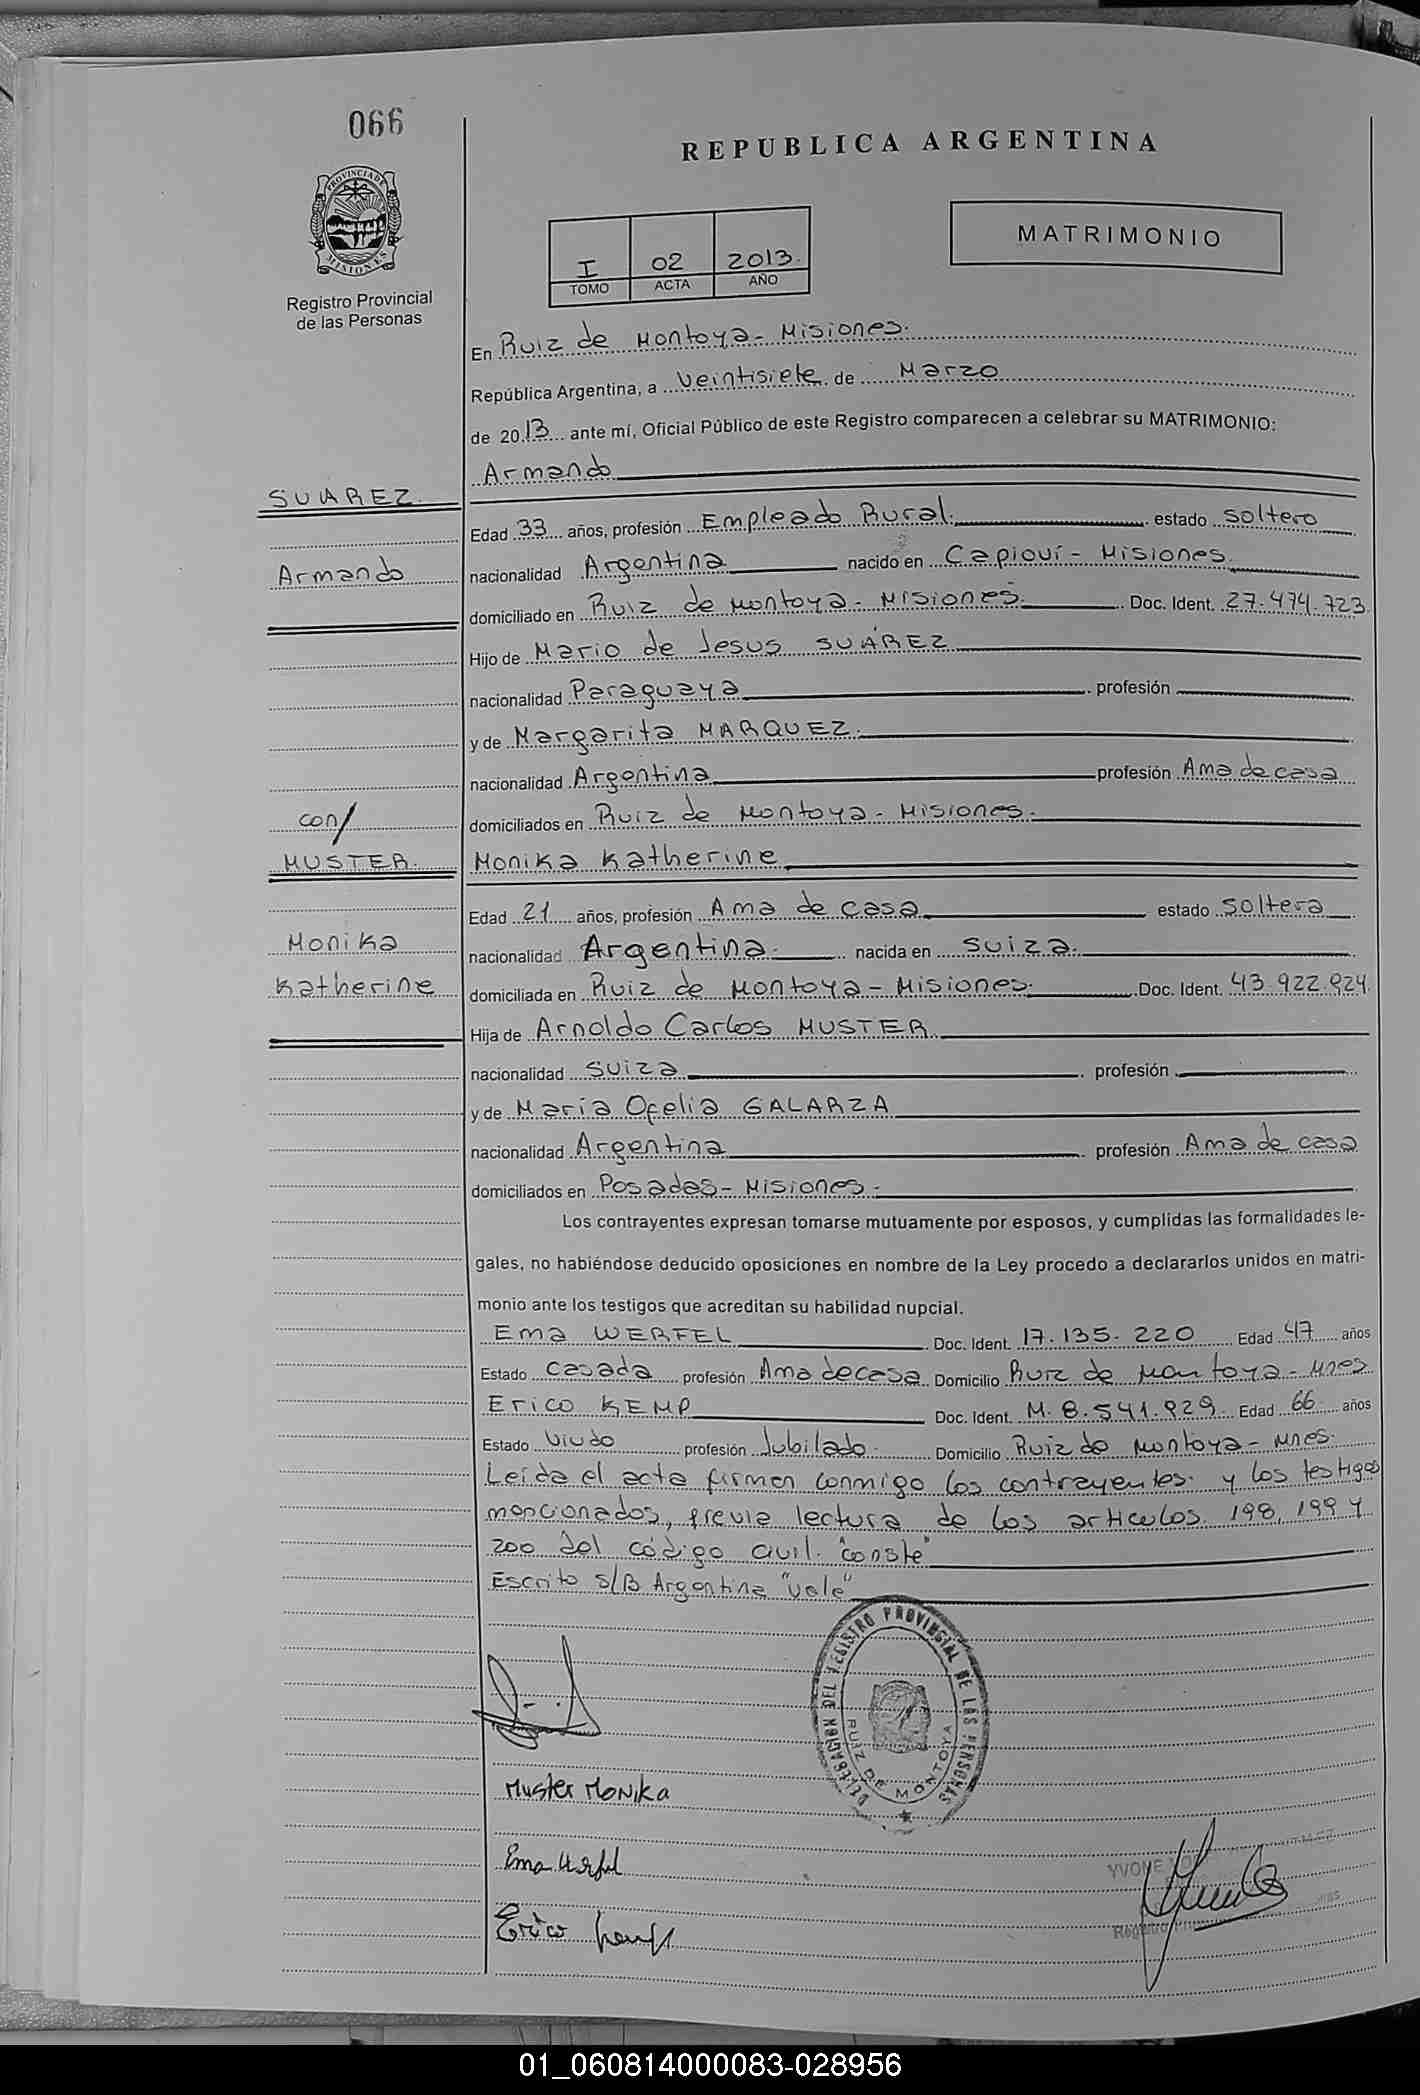 066
REPUBLICA ARGENTINA
PROVINCIA DE MISIONES
Registro Provincial
de las Personas
I 02 2013.
TOMO ACTA AÑO
MATRIMONIO
En Ruiz de Montoya - Misiones.
República Argentina, a veintisiete de Marzo
de 2013 ante mí, Oficial Público de este Registro comparecen a celebrar su MATRIMONIO:
SUAREZ. Armando
Edad 33 años, profesión Empleado Rural. estado soltero
Armando nacionalidad Argentina nacido en Capioví - Misiones.
domiciliado en Ruiz de Montoya - Misiones. Doc. Ident. 27.474.723
Hijo de Mario de Jesus SUÁREZ
nacionalidad Paraguaya profesión
y de Margarita MARQUEZ.
nacionalidad Argentina profesión Ama de casa
con/ domiciliados en Ruiz de Montoya - Misiones.
MUSTER. Monika Katherine
Edad 21 años, profesión Ama de casa estado soltera
Monika nacionalidad Argentina. nacida en Suiza.
Katherine domiciliada en Ruiz de Montoya - Misiones. Doc. Ident. 43.922.924
Hija de Arnoldo Carlos MUSTER
nacionalidad Suiza profesión
y de María Ofelia GALARZA
nacionalidad Argentina profesión Ama de casa
domiciliados en Posadas - Misiones.
Los contrayentes expresan tomarse mutuamente por esposos, y cumplidas las formalidades le-
gales, no habiéndose deducido oposiciones en nombre de la Ley procedo a declararlos unidos en matri-
monio ante los testigos que acreditan su habilidad nupcial.
Ema WERFEL Doc. Ident. 17.135.220 Edad 47 años
Estado casada profesión Ama de casa Domicilio Ruiz de Montoya - Mnes.
Erico KEMP Doc. Ident. M. 8.541.929 Edad 66 años
Estado Viudo profesión Jubilado. Domicilio Ruiz de Montoya - Mnes.
Leída el acta firman conmigo los contrayentes. y los testigos
mencionados, previa lectura de los artículos. 198, 199 y
200 del código civil. "conste"
Escrito s/B Argentina "vale"
DELEGACION DEL REGISTRO PROVINCIAL DE LAS PERSONAS
RUIZ DE MONTOYA
Muster Monika
Ema Werfel
YVONE
Erico Kempf
01_060814000083-028956